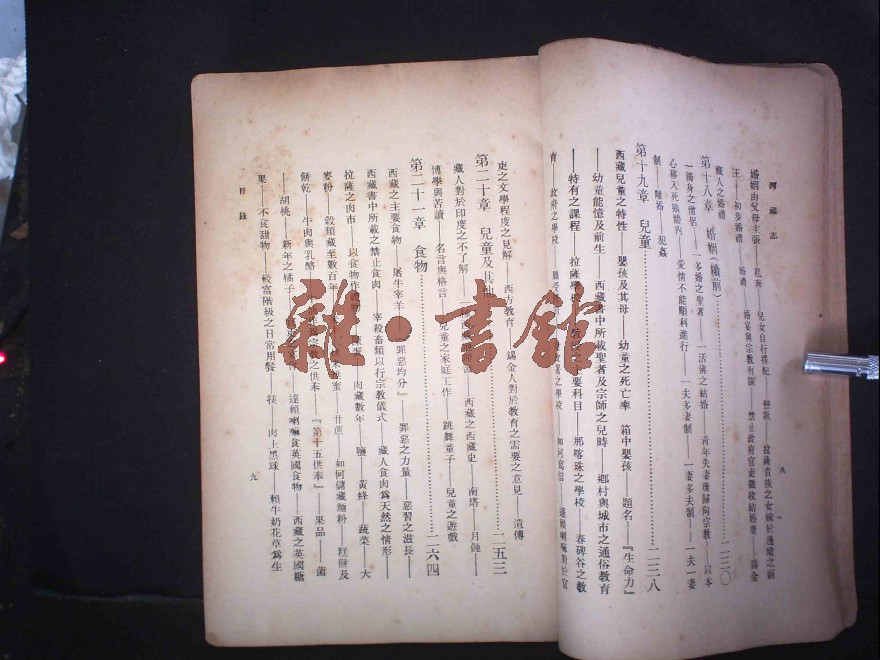 西藏志
八
婚姻由父母主張——私奔——兒女自行擇配——
王——初步婚禮——婚禮——婚宴與宗教有關——禁止政府官吏徵收結婚費——錫金
藏人之婚禮
第十八章 婚姻(續前)……二三〇
一獨身之僧侶——一多婚之聖者——一活佛之結婚——青年失妻後歸向宗教——以本
心移入死殼體內——愛情不能順利進行——一夫多妻制——一妻多夫制——一夫一妻
制——離婚——犯姦
第十九章 兒童……二三八
西藏兒童之特性——嬰孩及其母——幼童之死亡率——箱中嬰孩——題名——『生命力』
——幼童能憶及前生——西藏書中所載聖者及宗師之兒時——鄉村與城市之通俗教育
——特有之課程——拉薩學校——之主要科目——那喀珠之學校——春碑谷之教
育——政府之學校——之學校——如何寫信——達賴喇嘛對於官
吏之文學程度之見解——西方教育——錫金人對於教育之需要之意見——遺傳
第二十章 兒童及其他……二五三
藏人對於印度之不了解——西藏之西藏史——南塔——月蝕——
博學與苦讀——名言與格言——兒童之家庭工作——跳舞童子——兒童之遊戲
第二十一章 食物……二六四
西藏之主要食物——屠牛宰羊——『罪惡均分』——罪惡之力量——惡習之滋長——
西藏書中所載之禁止食肉——宰殺畜類以行宗教儀式——藏人食肉爲天然之情形——
拉薩之肉市——以食物作禮物——肉藏數年——鹽——黃蜂——蔬菜——大
麥粉——穀類藏至數百年——蜜——甘蔗——如何儲藏麵粉——糕餅及
餅乾——牛肉與乳酪——宗教之供奉——『第十五供奉』——果品——菌
——胡桃——新年之橘子——達賴喇嘛食英國食物——西藏之英國糖
果——不食甜物——較富階級之日常用餐——筷——肉上黑球——賴牛奶花草爲生
目錄
九
雜·書館